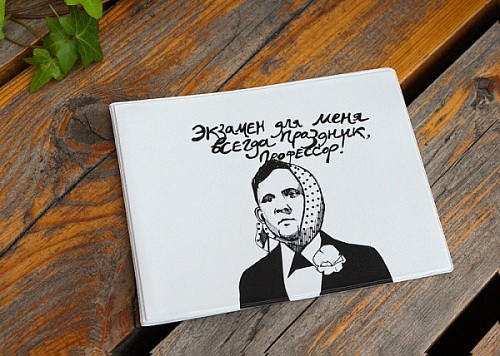 Экзамен для меня
всегда праздник,
профессор!